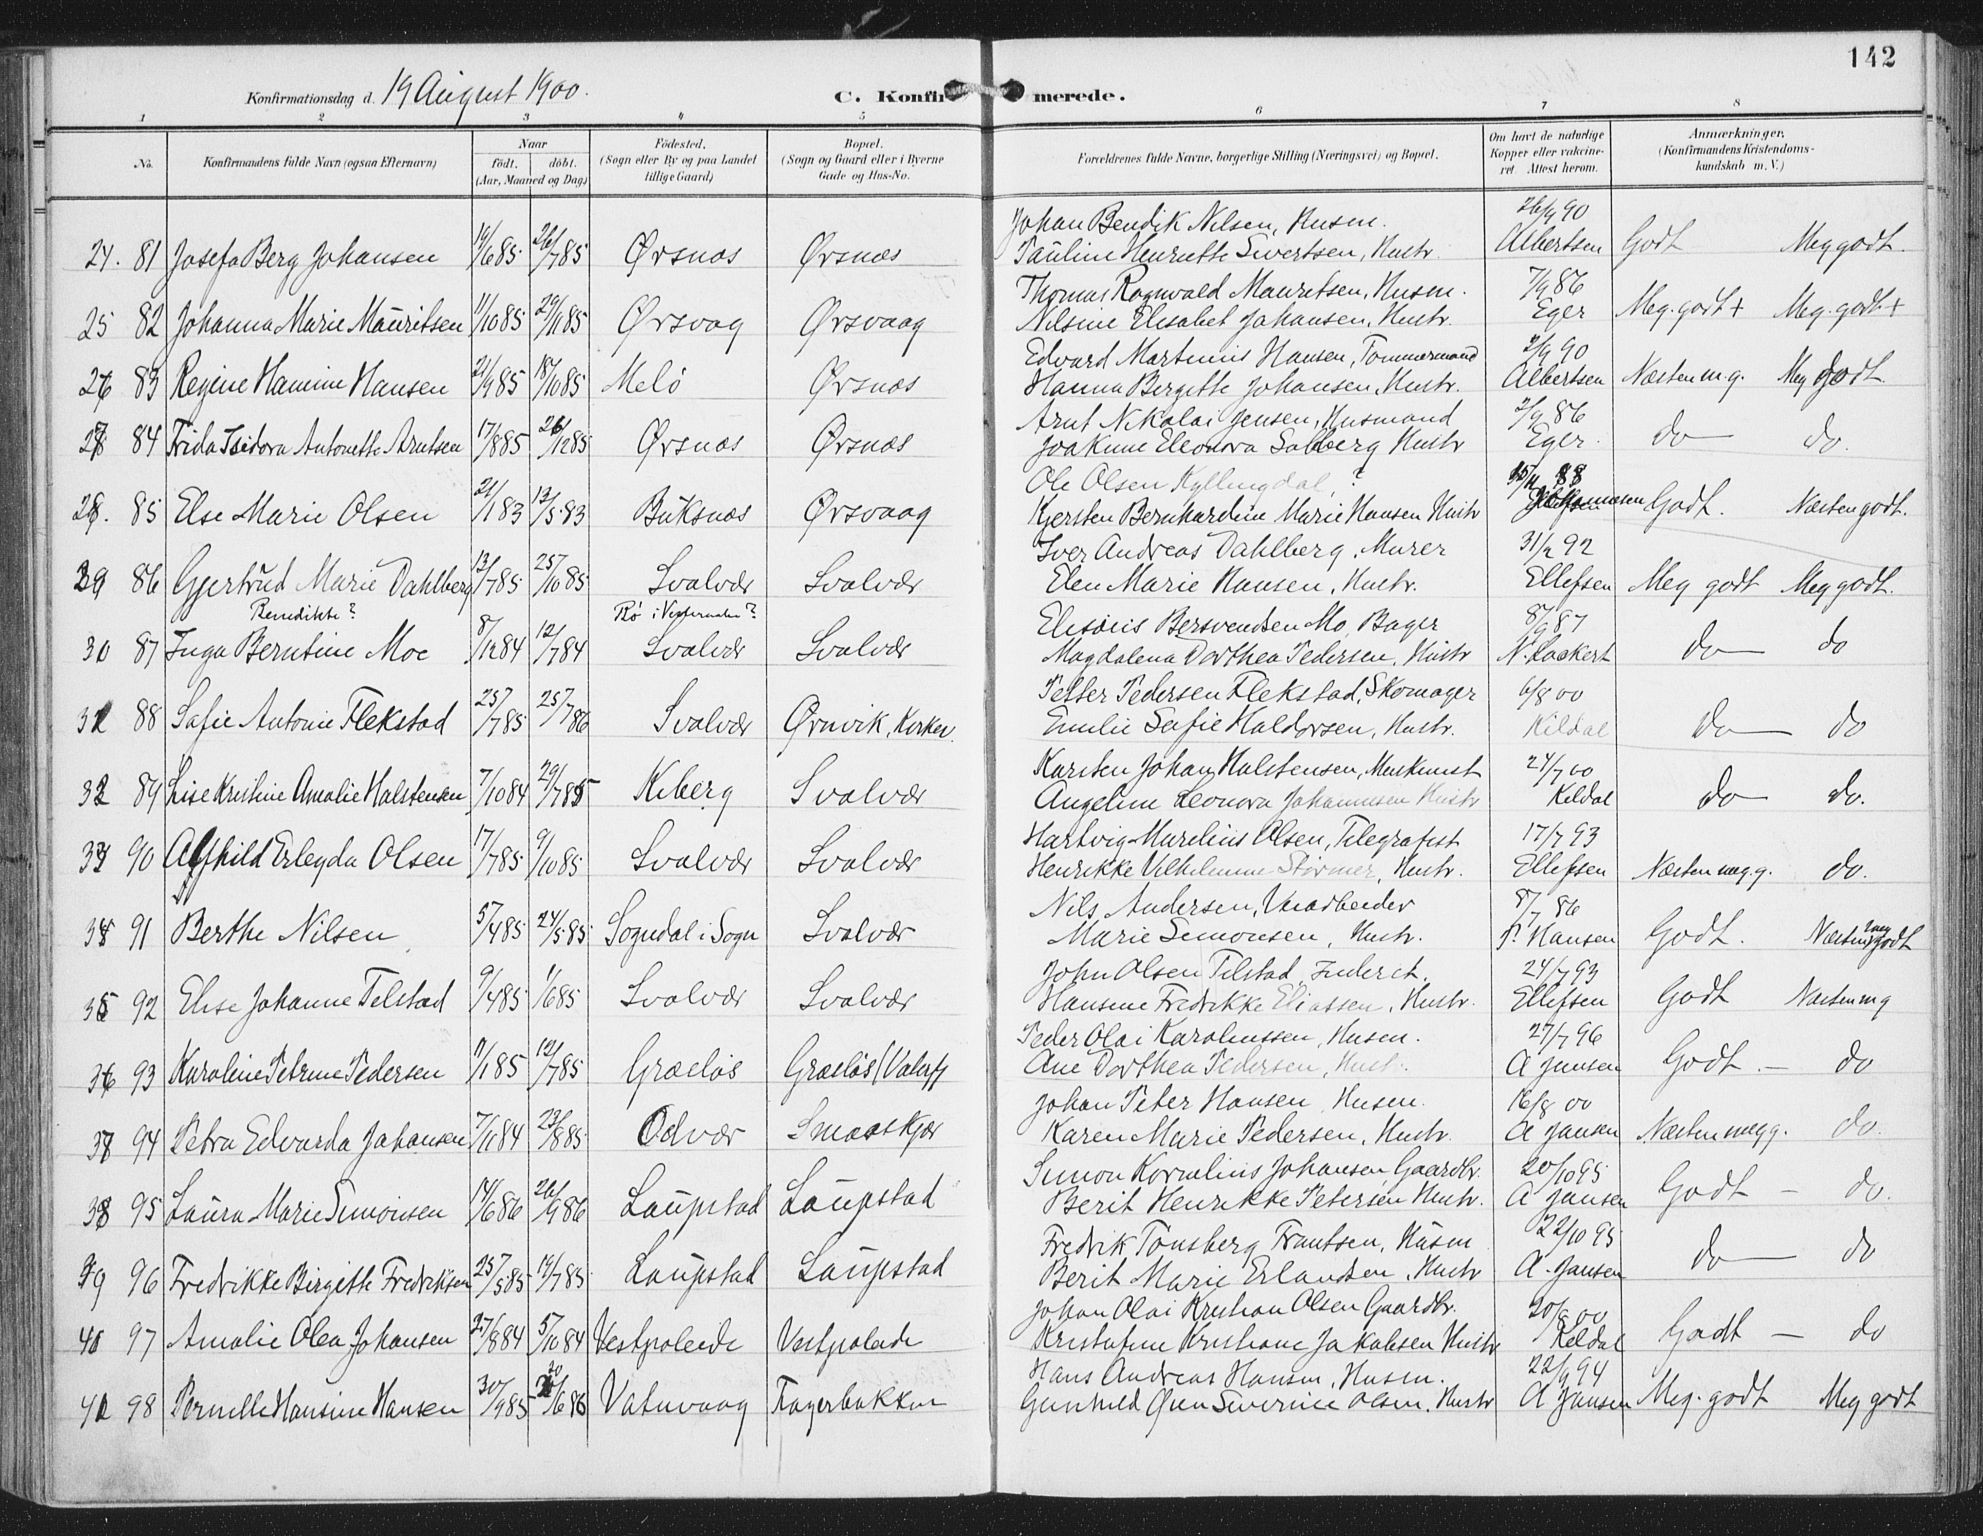 142
Konfirmationsdag d. 19 August 1900.
C. Konfirmerede.
1 2 3 4 5 6 7 8
No.
Konfirmandens fulde Navn (ogsaa Efternavn)
Naar
födt. döbt.
(Aar, Maaned og Dag)
Födested.
(Sogn eller By og paa Landet
tillige Gaard)
Bopæl.
(Sogn og Gaard eller i Byerne
Gade og Hus-No.
Forældrenes fulde Navne, borgerlige Stilling (Næringsvei) og Bopæl.
Om havt de naturlige
Kopper eller vakcine-
ret Attest herom.
Anmærkninger.
(Konfirmandens Kristendoms-
kundskab m. V.)
Johan Bendik Nilsen, Husm. 26/9 90
24. 81 Josefa Berg Johansen 19/6 85 26/7 85 Ørsnæs Ørsnæs Pauline Henriette Sivertsen, Hustr. Albertsen Godt Meg godt.
Thomas Ragnvald Mauritsen, Husm. 7/9 86
25 82 Johanna Marie Mauritsen 11/10 85 29/11 85 Ørsvaag Ørsvaag Nilsine Elisabet Johansen, Hustr. Eger Meg. godt + Meg. godt +
Edvard Martinus Hansen, Tømmermand 2/9 90
26 83 Regine Hansen 21/9 85 18/10 85 Melö Ørsnæs Hanna Birgitte Johansen, Hustr. Albertsen Næsten m.g. Meg Godt
Arnt Nikolai Jensen, Husmand 2/9 86
27 84 Frida Isidora Antonette Arntsen 17/8 85 26/12 85 Ørsnæs Ørsnæs Joakime Eleonora Solberg Hustr Eger. do do.
Ole Olsen Kyllingdal, ? 15/11 88
28. 85 Else Marie Olsen 21/1 83 13/5 83 Buksnæs Ørsvaag Kjersten Bernhardine Marie Hansen Hustr Godt. Næsten godt.
Iver Andreas Dahlberg, Murer 31/2 92
29 86 Gjertrud Marie Dahlberg 13/7 85 25/10 85 Svolvær Svolvær Elen Marie Hansen, Hustr. Ellefsen Meg godt Meg godt.
Benedikte? Bö i Vesteraalen? Bersvendsen Mo, Bager 8/9 87
30 87 Inga Berntine Moe 8/12 84 12/7 84 Svolvær Svolvær Magdalena Dorthea Pedersen, Hustr N. Lockert do do
Petter Pedersen Flekstad, Skomager 6/8 00
31 88 Sofie Antonie Flekstad 25/7 85 25/7 86 Svolvær Ørnvik, Kirken. Emilie Sofie Haldorsen, Hustr. Kildal do do
Karsten Johan Halstensen, 24/7 00
32 89 Lise Kristine Amalie Halstensen 7/10 84 29/7 85 Kiberg Svolvær Angeline Leonora Johannesen Hustr Kildal do do.
Hartvig Marelius Olsen, Telegrafist 17/7 93
33 90 Alfhild Erlegda Olsen 17/7 85 9/10 85 Svolvær Svolvær Henrikke Vilhelmine Størmer, Hustr. Ellefsen Næsten meg.g. do.
Nils Andersen, 8/7 86
34 91 Berthe Nilsen 5/4 85 24/5 85 Sogndal i Sogn Svolvær Marie Simonsen, Hustr. P. Hansen Godt. Næsten meg godt
John Olsen Tilstad, Inderst. 24/7 93
35 92 Elise Johanne Telstad 9/4 85 1/6 85 Svolvær Svolvær Hansine Fredrikke Eliassen, Hustr. Ellefsen Godt Næsten m g
Peder Olai Karoliussen, Husm. 27/7 96
36 93 Karoline Petrine Pedersen 11/1 85 12/7 85 Græeløs Græeløs (Valerf) Ane Dorthea Pedersen, Hustr. A Jansen Godt. — do
Johan Peter Hansen, Husm. 16/8 00
37 94 Petra Edvarda Johansen 7/11 84 23/8 85 Odvær Smaaskjær Karen Marie Pedersen, Hustr. A Jansen Næsten megg. do.
Simon Kornelius Johansen Gaardbr. 20/10 95
38 95 Laura Marie Simonsen 14/6 86 26/9 86 Laupstad Laupstad Berit Henrikke Petersen Hustr. A Jansen Godt — do.
Fredrik Tønsberg Frantsen, Husm 22/10 95
39 96 Fredrikke Birgitte Fredriksen 25/5 85 19/7 85 Laupstad Laupstad Berit Marie Erlandsen, Hustr A. Jansen do do
Johan Olai Kristian Olsen Gaardbr. 20/8 00
40 97 Amalie Olea Johansen 27/8 84 5/10 84 Vestpoleide Vestpoleide Kristofine Kristiane Jakobsen Hustr Kildal Godt — do
Hans Andreas Hansen, Husm. 22/9 94
41 98 Pernille Hansine Hansen 30/9 85 20/6 86 Vatnvaag Fagerbakken Gunhild Severine Olsen, Hustr A Jansen Meg. godt Meg godt